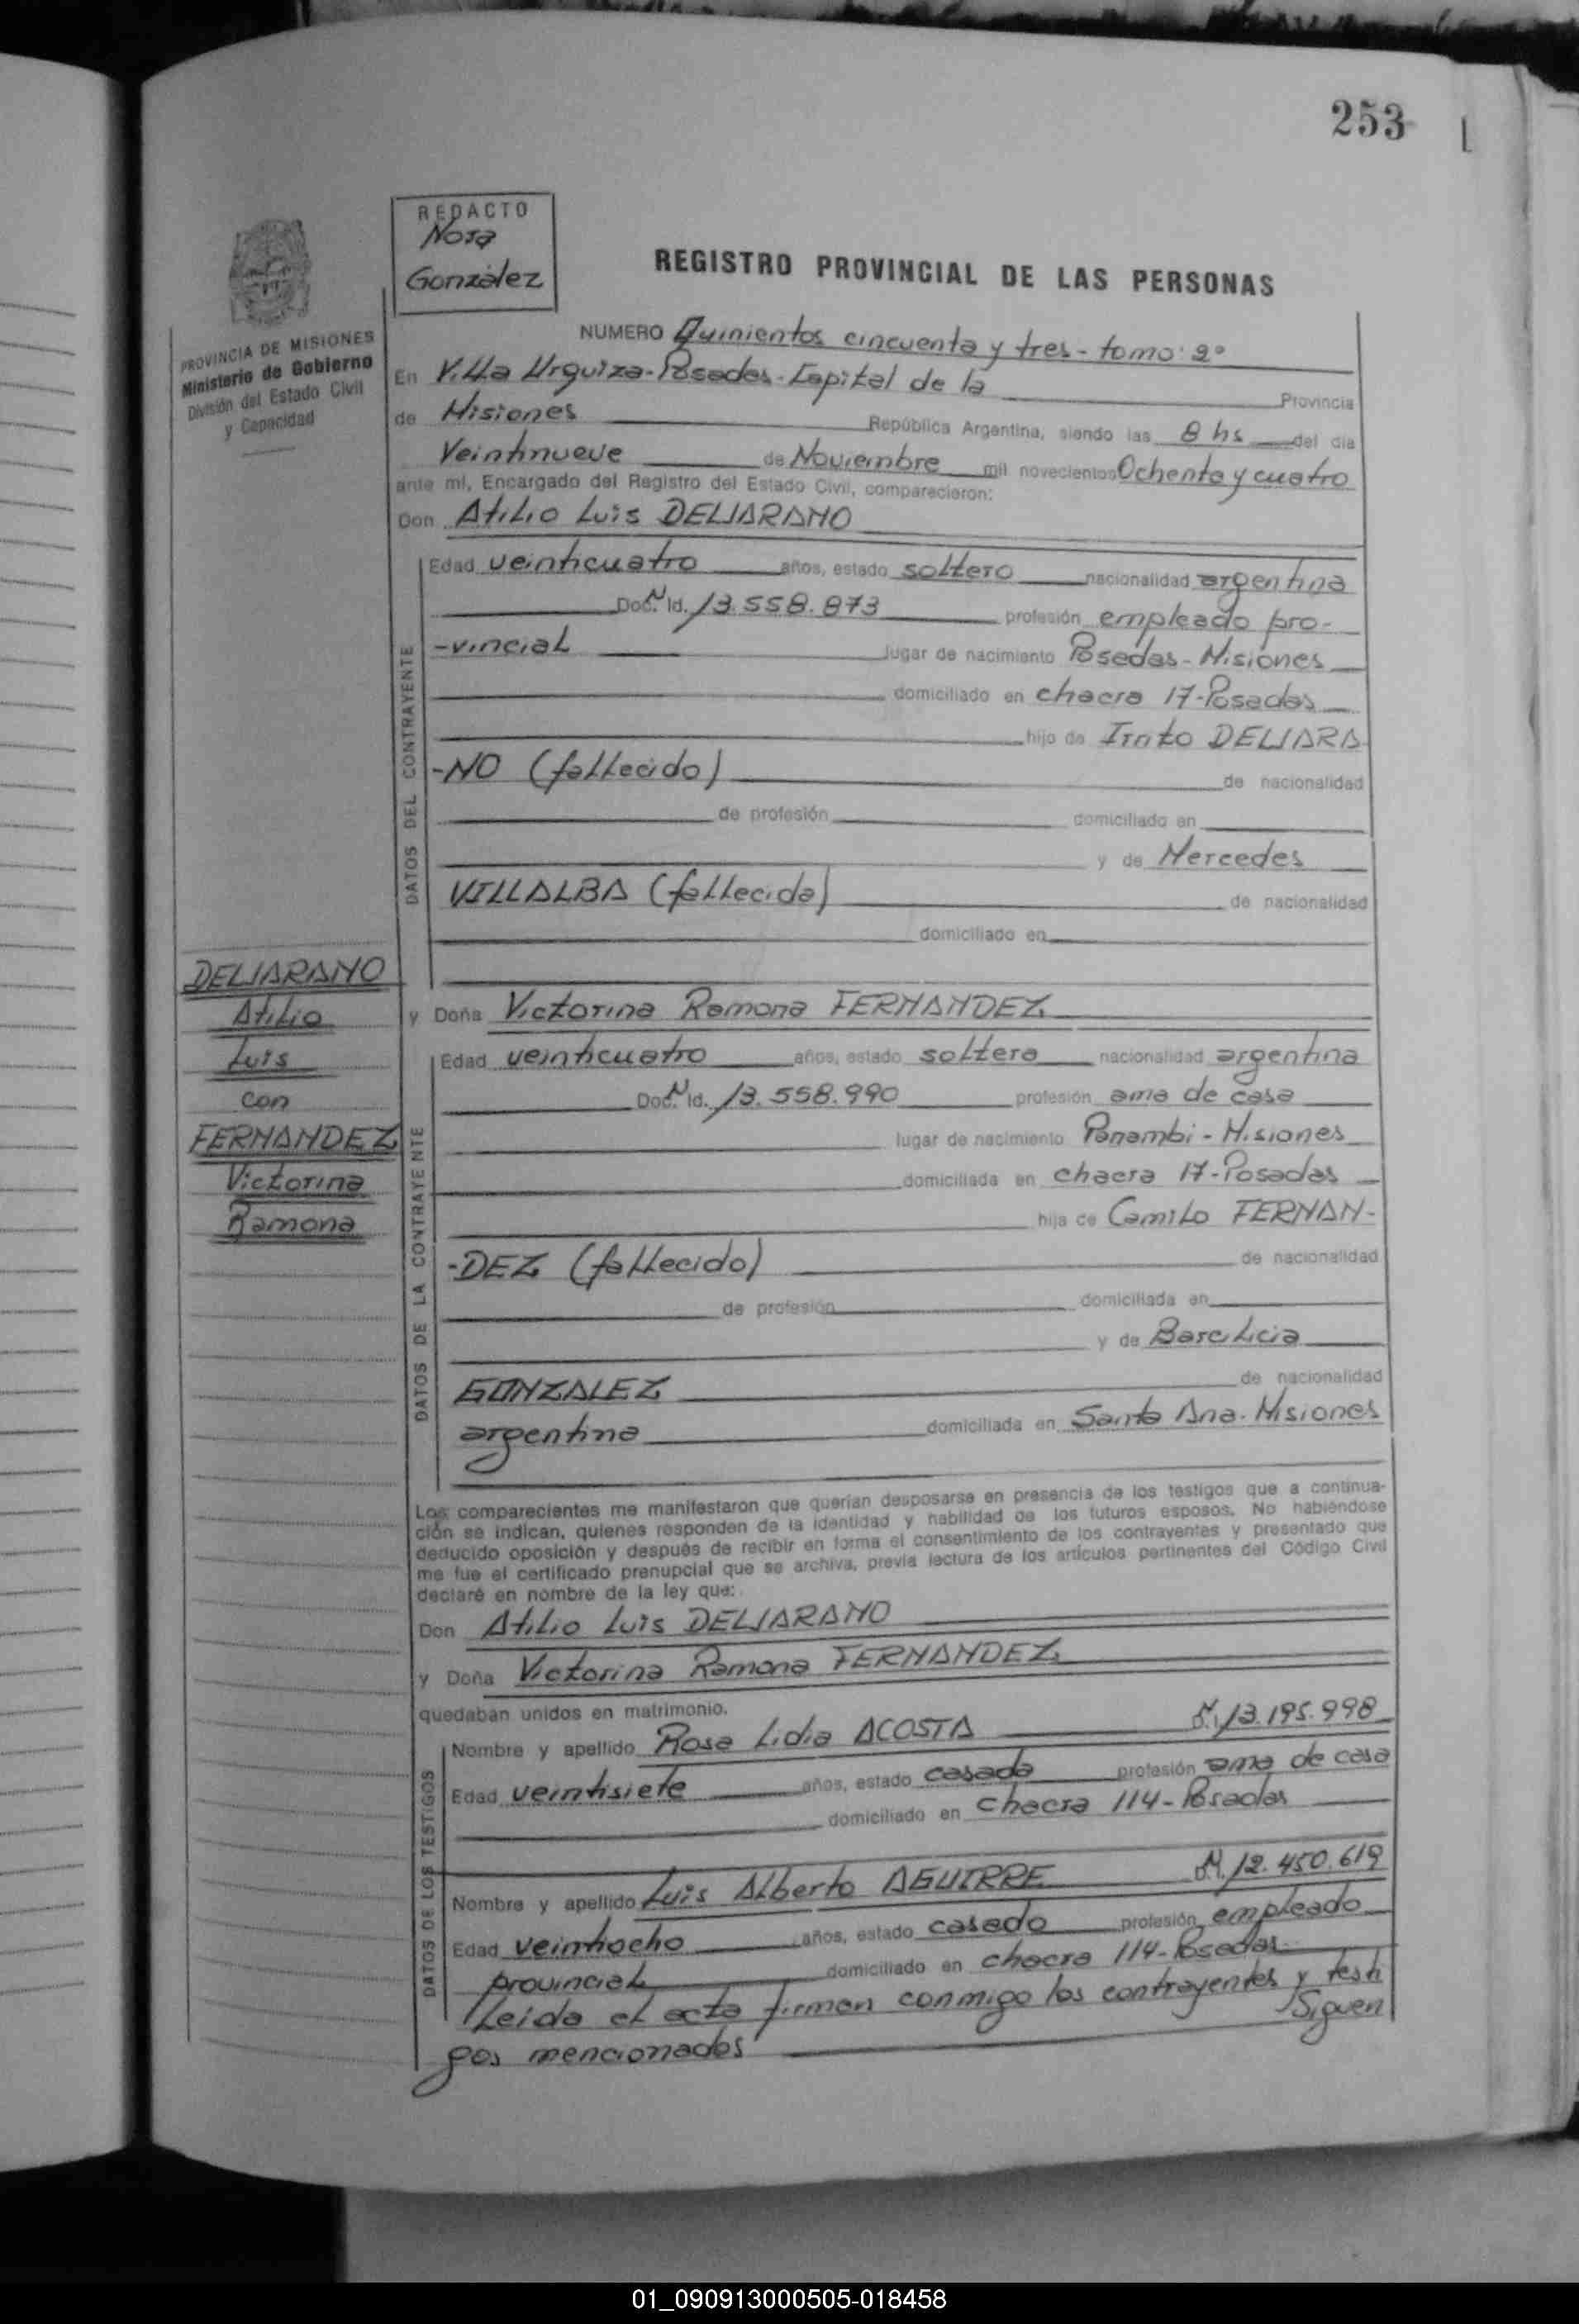 253
REDACTO
Nora
González
REGISTRO PROVINCIAL DE LAS PERSONAS
PROVINCIA DE MISIONES
Ministerio de Gobierno
División del Estado Civil
y Capacidad
NUMERO Quinientos cincuenta y tres - tomo: 2º
En Villa Urquiza - Posadas - Capital de la Provincia
de Misiones República Argentina, siendo las 8 hs del día
Veintinueve de Noviembre mil novecientos Ochenta y cuatro
ante mí, Encargado del Registro del Estado Civil, comparecieron:
Don Atilio Luis DELJARANO
DATOS DEL CONTRAYENTE
Edad veinticuatro años, estado soltero nacionalidad argentina
Doc. N Id. 13.558.873 profesión empleado pro-
-vincial lugar de nacimiento Posadas - Misiones
domiciliado en chacra 17 - Posadas
hijo de DELJARA
-NO (fallecido) de nacionalidad
de profesión domiciliado en
y de Mercedes
VILLALBA (fallecida) de nacionalidad
domiciliado en
DELJARANO
Atilio
Luis
con
FERNANDEZ
Victorina
Ramona
y Doña Victorina Ramona FERNANDEZ
DATOS DE LA CONTRAYENTE
Edad veinticuatro años, estado soltera nacionalidad argentina
Doc. N Id. 13.558.990 profesión ama de casa
lugar de nacimiento Panambi - Misiones
domiciliada en chacra 17 - Posadas
hija de Camilo FERNAN-
-DEZ (fallecido) de nacionalidad
de profesión domiciliada en
y de Barcilicia
GONZALEZ de nacionalidad
argentina domiciliada en Santa Ana - Misiones
Los comparecientes me manifestaron que querían desposarse en presencia de los testigos que a continua-
ción se indican, quienes responden de la identidad y habilidad de los futuros esposos. No habiéndose
deducido oposición y después de recibir en forma el consentimiento de los contrayentes y presentado que
me fue el certificado prenupcial que se archiva, previa lectura de los artículos pertinentes del Código Civil
declaré en nombre de la ley que:
Don Atilio Luis DELJARANO
y Doña Victorina Ramona FERNANDEZ
quedaban unidos en matrimonio.
DATOS DE LOS TESTIGOS
Nombre y apellido Rosa Lidia ACOSTA 13.195.998
Edad veintisiete años, estado casada profesión ama de casa
domiciliado en chacra 114 - Posadas
Nombre y apellido Luis Alberto AGUIRRE 12.450.619
Edad veintiocho años, estado casado profesión empleado
provincial domiciliado en chacra 114 - Posadas
Leida el acta firman conmigo los contrayentes y testi
Siguen
gos mencionados
01_090913000505-018458